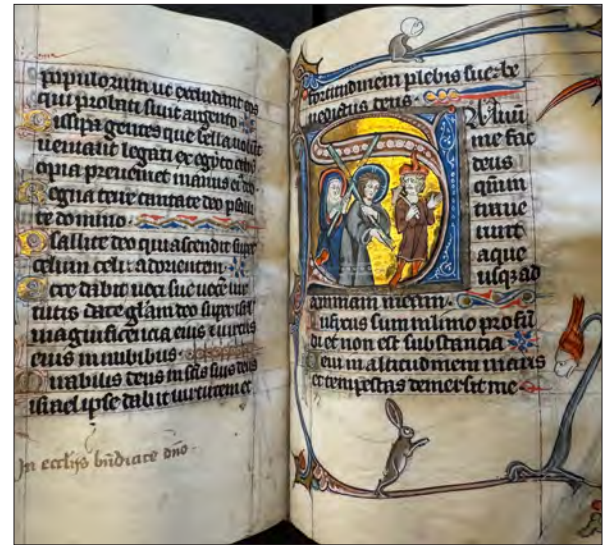 populorum ut excludant eos
qui probati sunt argento
Dissipa gentes que bella volūt
venient legati ex egypto ethi
opia preveniet manus ei deo
Regna terre cantate deo psalli
te domino
Psallite deo qui ascendit super
celum celi ad orientem
Ecce dabit voci sue vocē vir
tutis date gl̄am deo super isrl̄
magnificencia eius et virtus
eius in nubibus
Mirabilis deus in scīs suis deus
israel ipse dabit virtutem et
In eccl̄ijs bn̄dicite dn̄o
fortitudinem plebis sue be
nedictus deus
Salvū
me fac
deus
qm̄
intrave
runt
aque
usq̄ ad
animam meam
Infixus sum in limo profū
di et non est substancia
Veni in altitudinem maris
et tempestas demersit me